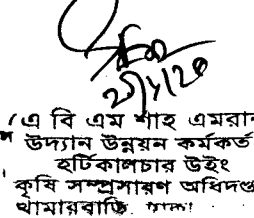 (এ বি এম শাহ এমরান
উদ্যান উন্নয়ন কর্মকর্ত
হর্টিকালচার উইং
কৃষি সম্প্রসারণ অধিদপ্ত
খামারবাড়ি, ঢাকা।